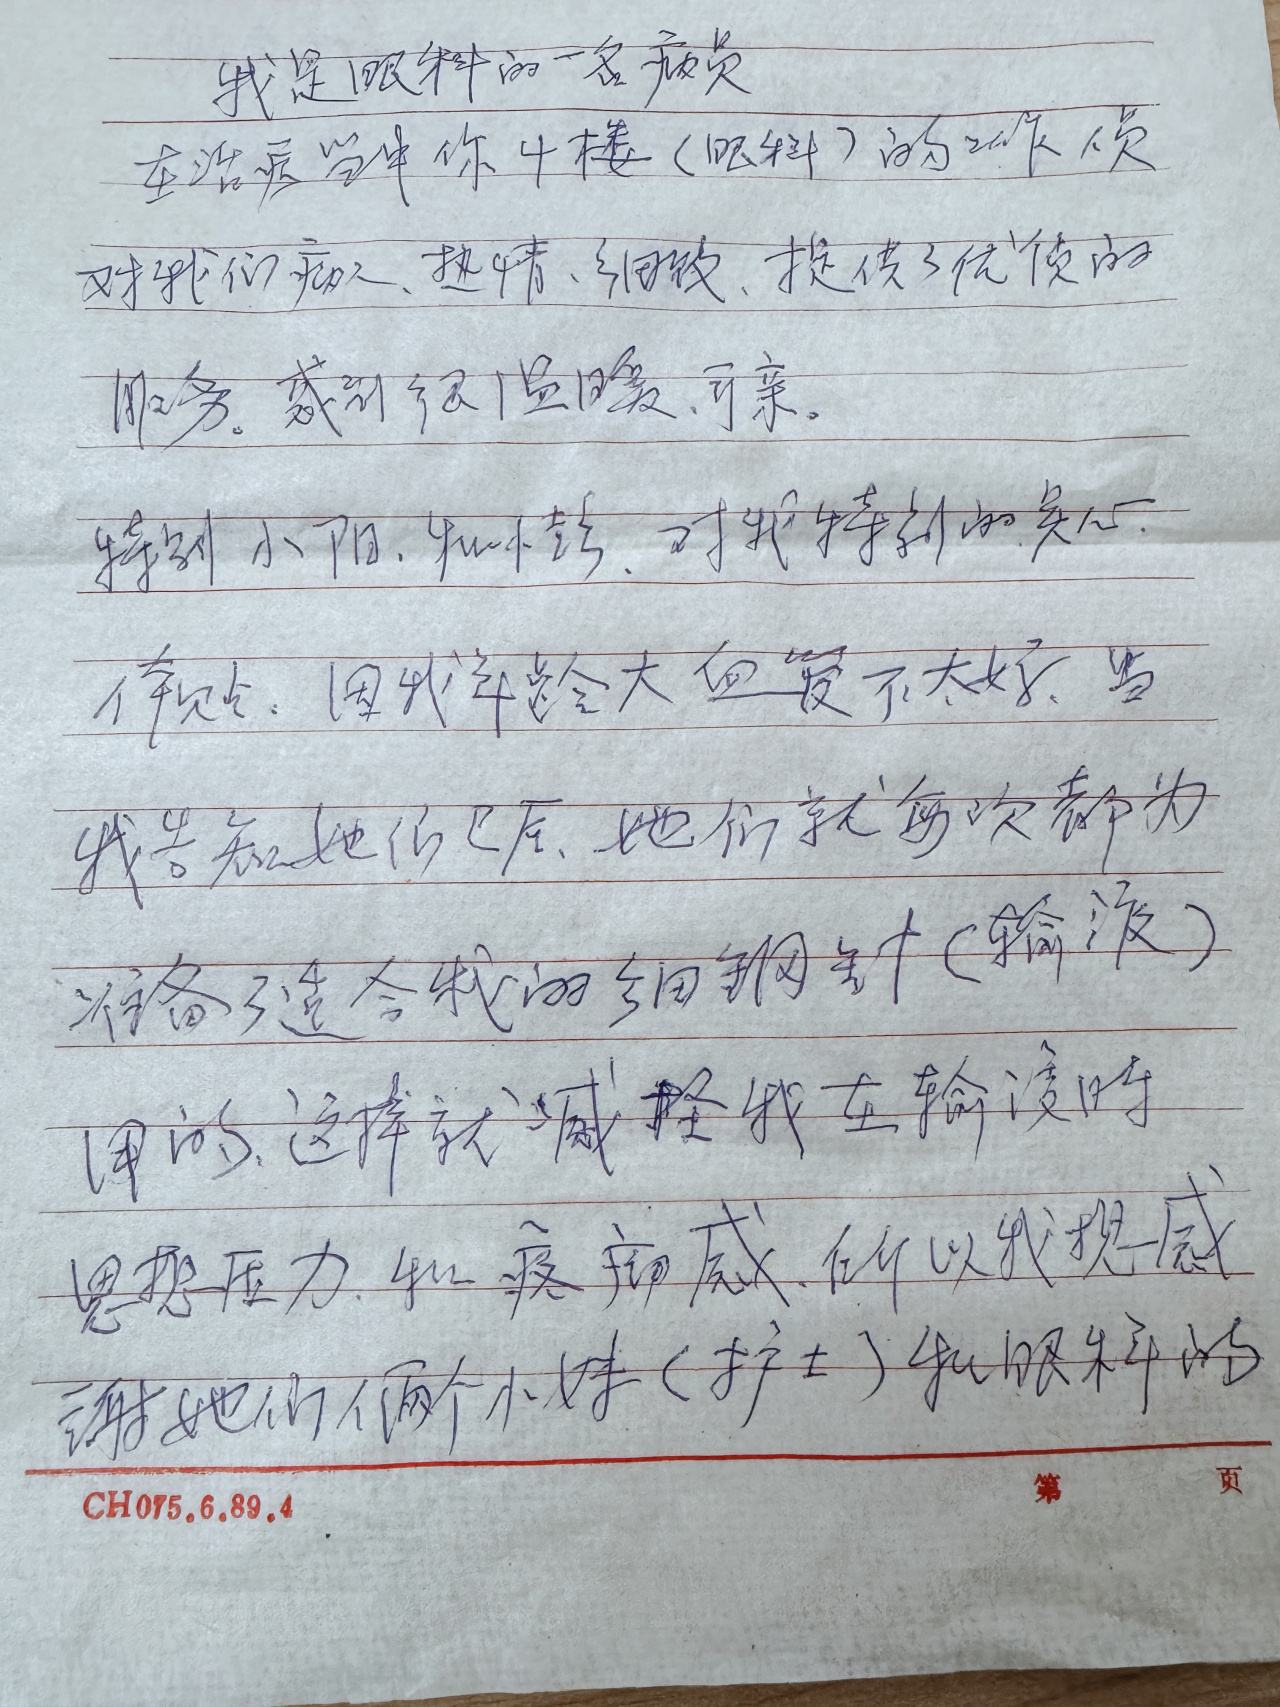 我是眼科的一名病员
在治疗当中你4楼（眼科）的工作人员
对我们病人、热情、细致、提供了优质的
服务。感到很温暖、可亲。
特别小阳、和小彭、对我特别的关心、
体贴、因我年龄大血管不太好、当
我告知她们已后、她们就每次都为
准备了适合我的细钢针（输液）
用的、这样就减轻我在输液时
思想压力、和疼痛感、所以我想感
谢她们俩个小妹（护士）和眼科的
CH075.6.89.4
第 页